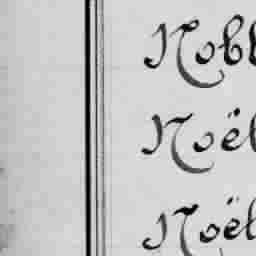 Nobl
Noël
Noël